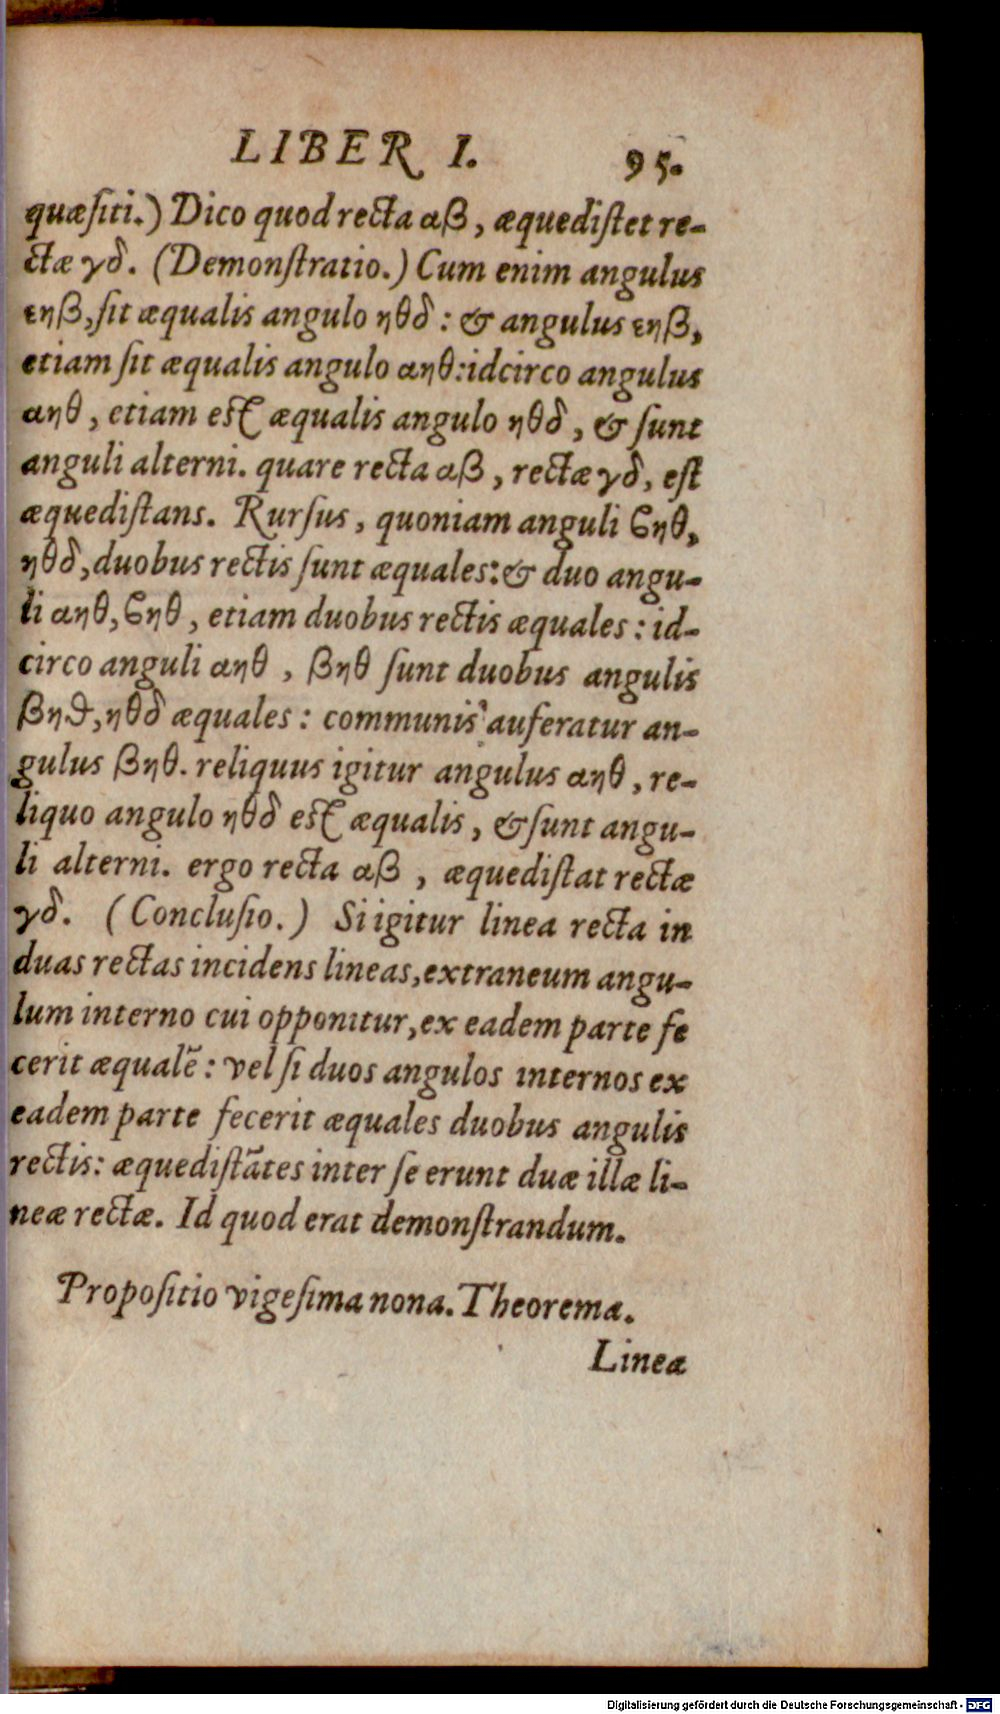 LIBER I. 95.
quæſiti.) Dico quod recta αβ, æquediſtet re-
ctæ γδ. (Demonſtratio.) Cum enim angulus
εηβ, ſit æqualis angulo ηθδ: & angulus εηβ,
etiam ſit æqualis angulo αηθ: idcirco angulus
αηθ, etiam eſt æqualis angulo ηθδ, & ſunt
anguli alterni. quare recta αβ, rectæ γδ, eſt
æquediſtans. Rurſus, quoniam anguli ϐηθ,
ηθδ, duobus rectis ſunt æquales: & duo angu-
li αηθ, ϐηθ, etiam duobus rectis æquales: id-
circo anguli αηθ, βηθ ſunt duobus angulis
βηϑ, ηθδ æquales: communis auferatur an-
gulus βηθ. reliquus igitur angulus αηθ, re-
liquo angulo ηθδ eſt æqualis, & ſunt angu-
li alterni. ergo recta αβ, æquediſtat rectæ
γδ. (Concluſio.) Si igitur linea recta in
duas rectas incidens lineas, extraneum angu-
lum interno cui opponitur, ex eadem parte fe
cerit æqualẽ: vel ſi duos angulos internos ex
eadem parte fecerit æquales duobus angulis
rectis: æquediſtãtes inter ſe erunt duæ illæ li-
neæ rectæ. Id quod erat demonſtrandum.
Propoſitio vigeſima nona. Theorema.
Linea
Digitalisierung gefördert durch die Deutsche Forschungsgemeinschaft - DFG